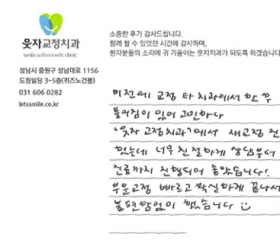 웃자교정치과
smile orthodontic clinic
성남시 중원구 성남대로 1156
도참빌딩 3~5층(위즈노건물)
031 606 0282
letssmile.co.kr
소중한 후기 감사드립니다.
함께 할 수 있었던 시간에 감사하며,
환자분들의 소리에 귀 기울이는 웃자치과가 되도록 하겠습니다
이전에 교정 타 치과에서 한 후
틀어짐이 있어 고민하다
"웃자 교정치과"에서 재교정 진
했는데 너무 친절하게 상담부터
진료까지 진행되어 좋았습니다!
부분교정 빠르고 확실하게 끝나서
불편함없이 했습니다